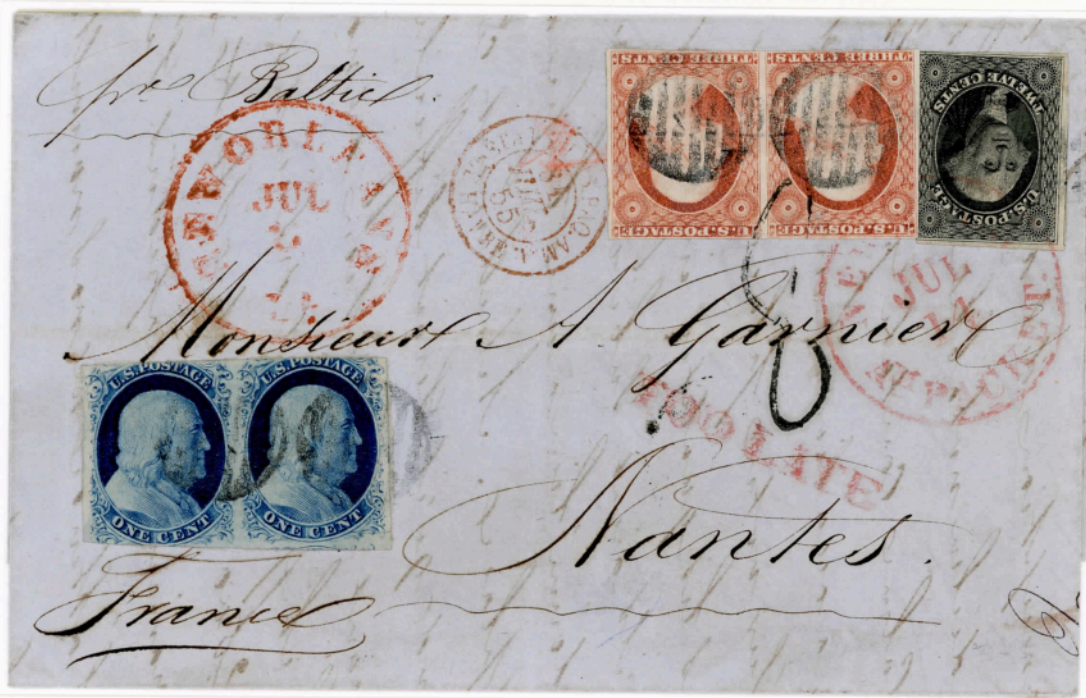 pr Baltic
NEW ORLEANS
JUL
THREE CENTS
U.S. POSTAGE
THREE CENTS
U.S. POSTAGE
TWELVE CENTS
U.S. POSTAGE
55
JUL
PACKET
Monsieur A Garnier
8
TOO LATE
U.S. POSTAGE
ONE CENT
U.S. POSTAGE
ONE CENT
Nantes.
France